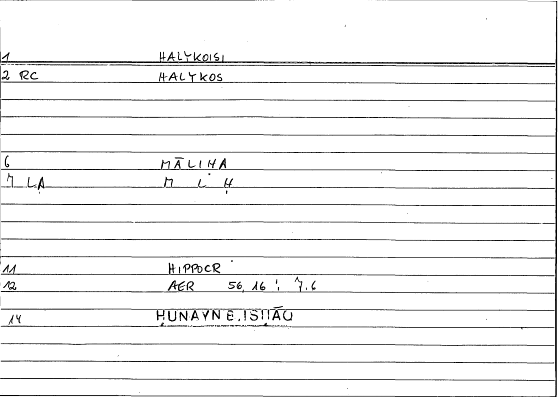 1 HALYKOISI
2 RC HALYKOS
6 MĀLIḤA
7 LA M L Ḥ
11 HIPPOCR
12 AER 56,16 ; 7.6
14 ḤUNAYN B.ISḤĀQ